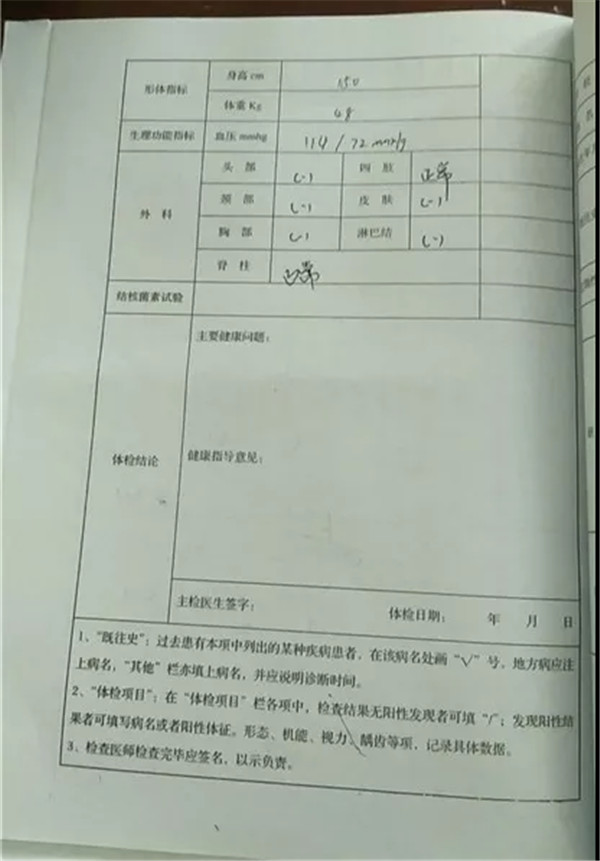 形体指标 身高 cm 150
体重 Kg 48
生理功能指标 血压 mmhg 114 / 72 mmHg
外 科 头 部 (-) 四 肢 正常
颈 部 (-) 皮 肤 (-)
胸 部 (-) 淋巴结 (-)
脊 柱 正常
结核菌素试验
体检结论
主要健康问题：
健康指导意见：
主检医生签字： 体检日期： 年 月 日
1、“既往史”：过去患有本项中列出的某种疾病患者，在该病名处画“√”号。地方病应注
上病名，“其他”栏亦填上病名，并应说明诊断时间。
2、“体检项目”：在“体检项目”栏各项中，检查结果无阳性发现者可填“/”；发现阳性结
果者可填写病名或者阳性体征。形态、机能、视力、龋齿等项，记录具体数据。
3、检查医师检查完毕应签名，以示负责。